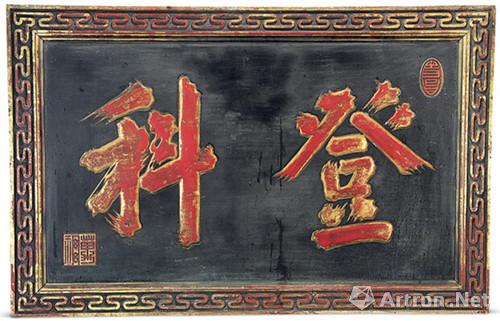 登科
Artron.Net